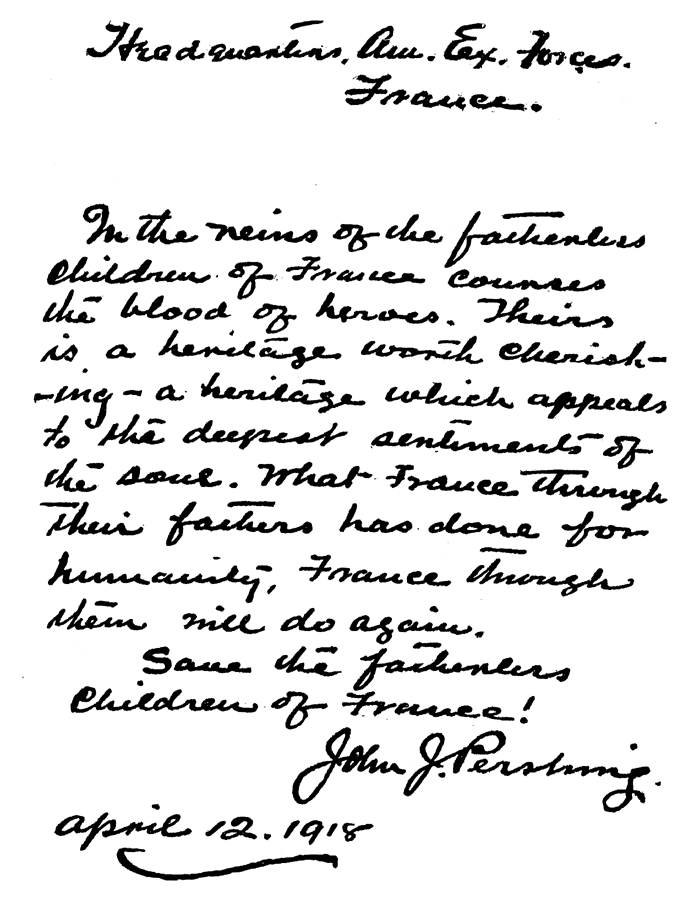 Headquarters, Am. Ex. Forces.
France.
In the veins of the fatherless
children of France courses
the blood of heroes. Theirs
is a heritage worth cherish-
-ing - a heritage which appeals
to the deepest sentiments of
the soul. What France through
their fathers has done for
humanity, France through
them will do again.
Save the fatherless
children of France!
John J. Pershing.
April 12. 1918